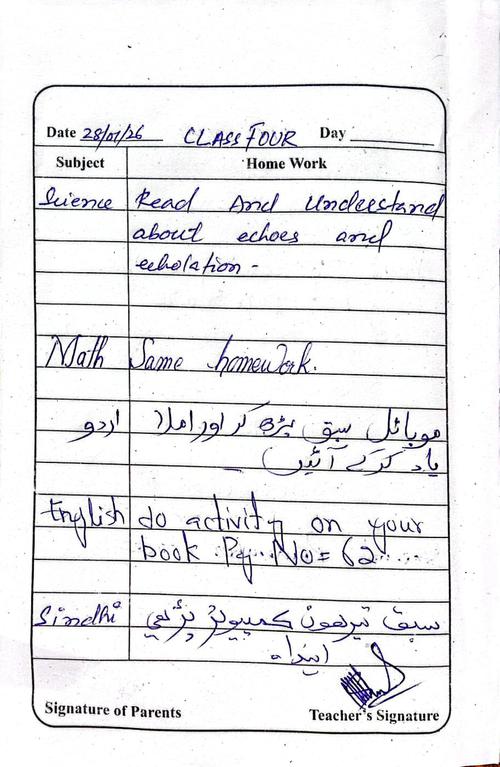 Date 28/01/26 CLASS FOUR Day
Subject Home Work
Science Read And Understand
about echoes and
echolation -
Math Same homework.
اردو موبائل سبق پڑھ کر اور املا
یاد کرکے آئیں
English do activity on your
book Pg No = 62
Sindhi سبق تيرهون ڪمپيوٽر پڙهي
اينداء
Signature of Parents Teacher's Signature